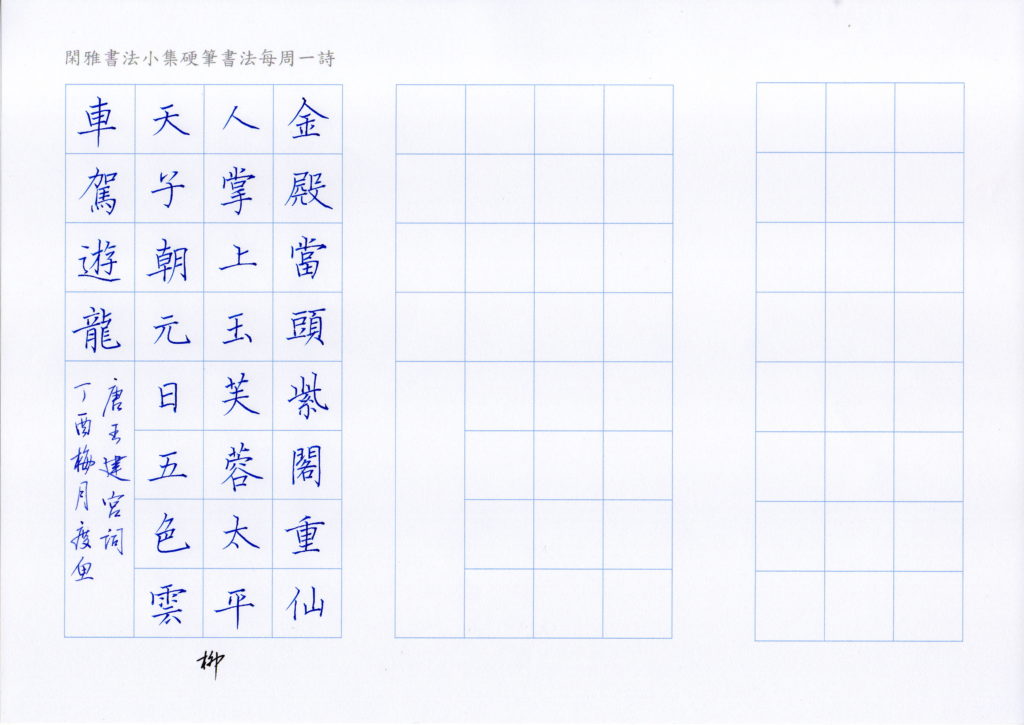 閑雅書法小集硬筆書法每周一詩
金殿當頭紫閣重仙
人掌上玉芙蓉太平
天子朝元日五色雲
車駕遊龍
唐王建宮詞
丁酉梅月瘦鱼
柳